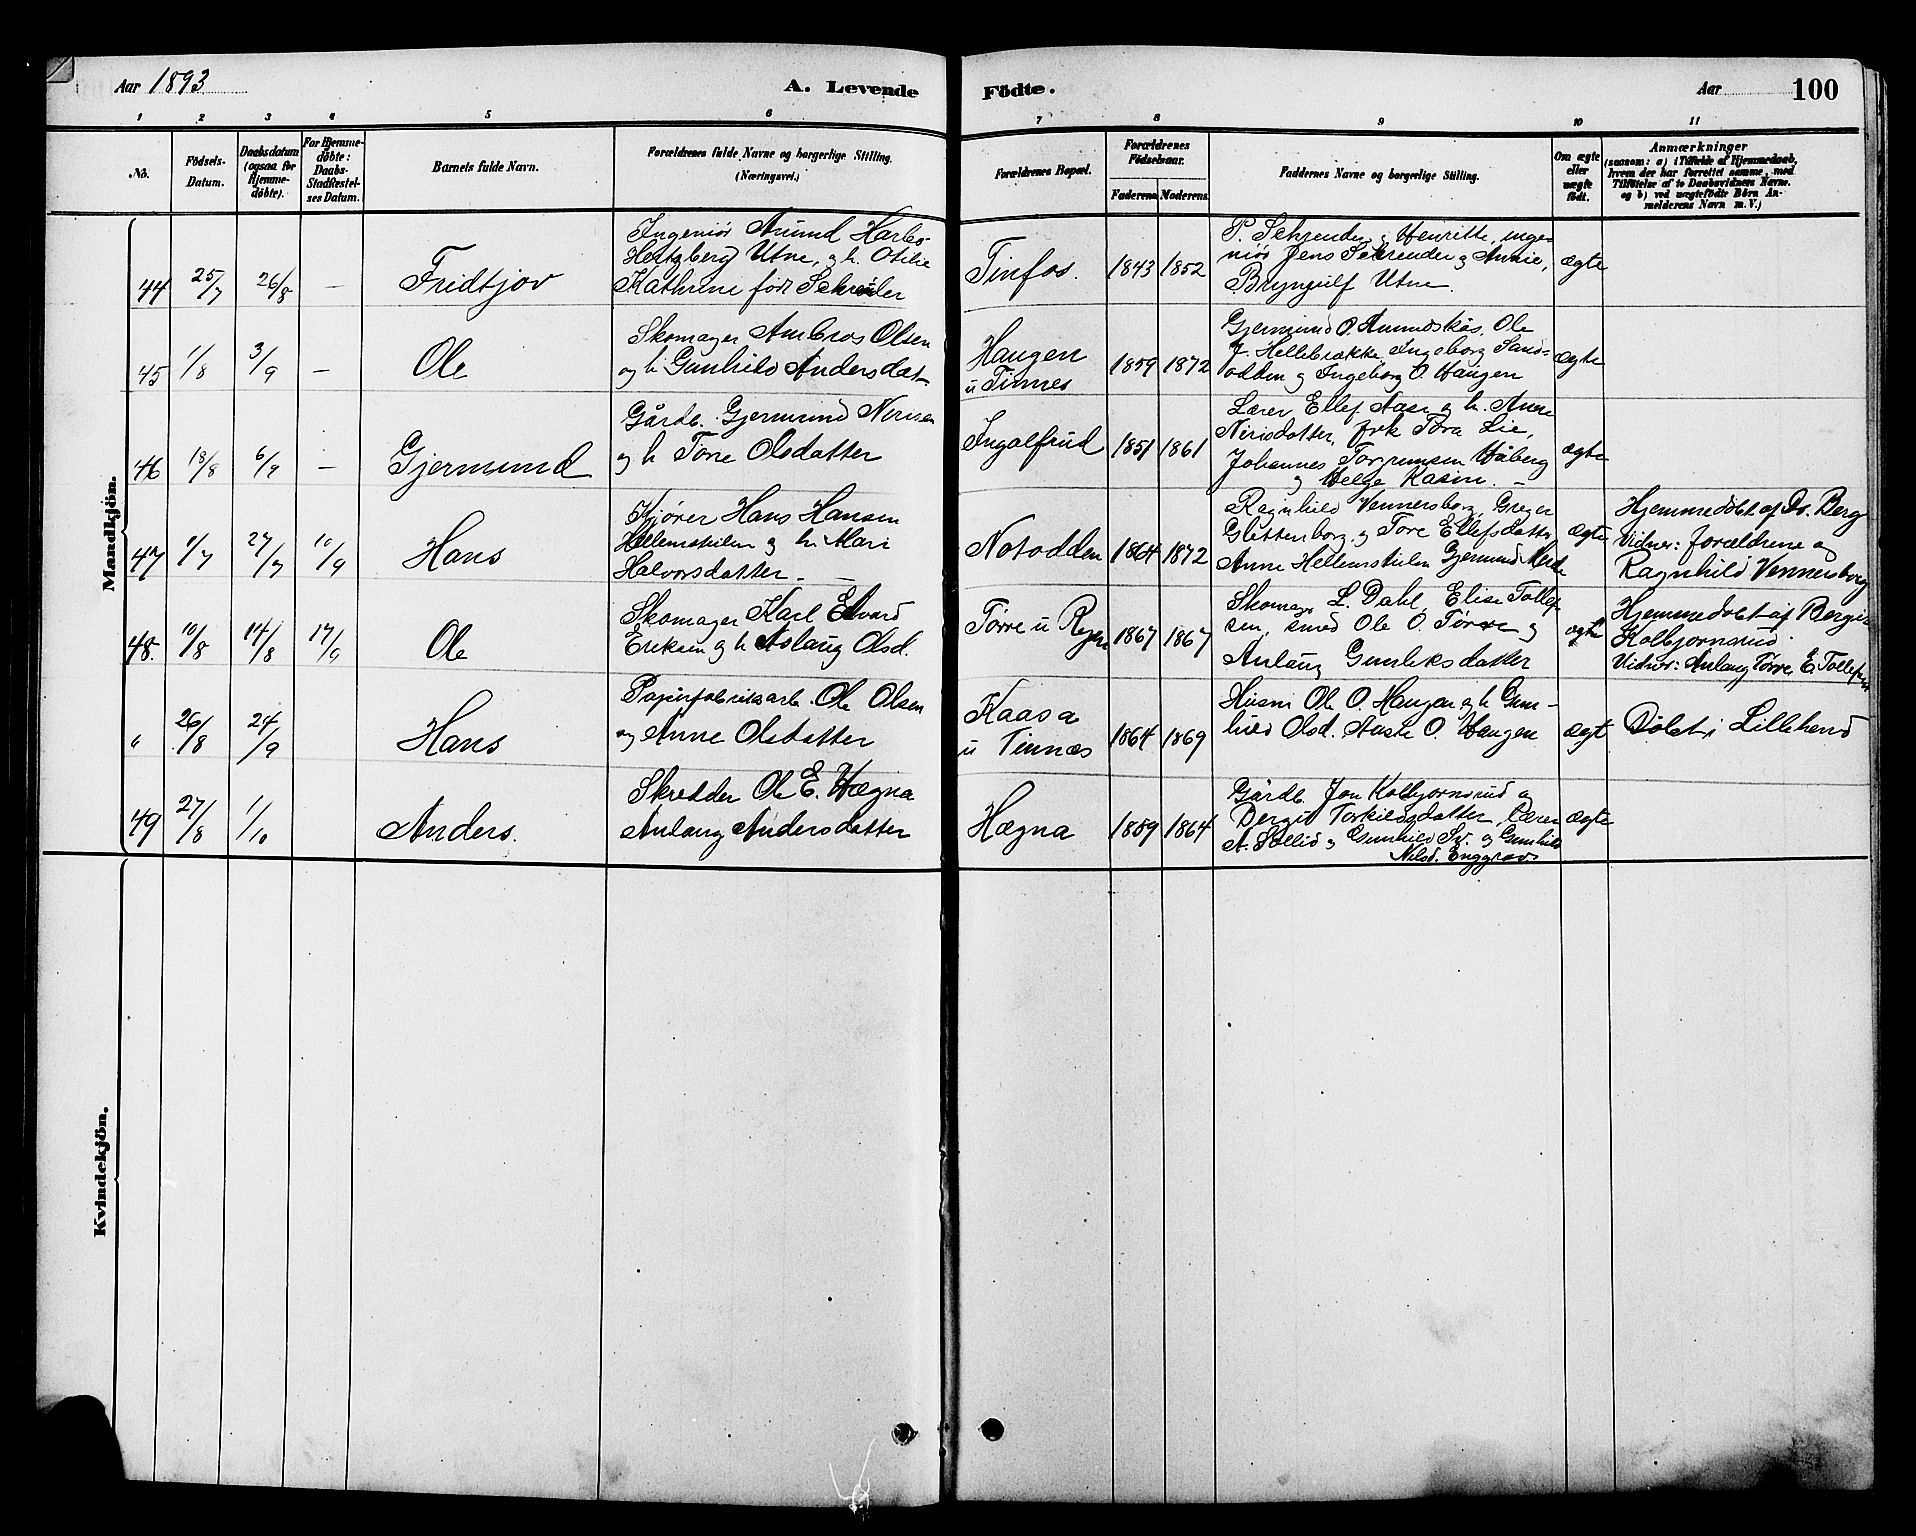 Aar 1893
A. Levende Födte.
Aar 100
1 2 3 4 5 6 7 8 9 10 11
No.
Födsels-
Datum.
Daabsdatum
(ogsaa for
Hjemme-
döbte).
For Hjemme-
döbte:
Daabs-
Stadfæstel-
ses Datum.
Barnets fulde Navn.
Forældrenes fulde Navne og borgerlige Stilling.
(Næringsvei.)
Forældrenes Bopæl.
Forældrenes
Födselsaar.
Faderens Moderens
Faddernes Navne og borgerlige Stilling.
Om ægte
eller
uægte
födt.
Anmærkninger
(saasom: a) i Tilfælde af Hjemmedaab,
hvem der har forrettet samme, med
Tilföielse af to Daabsvidners Navne.
og b) ved uægtefödte Börn An-
melderens Navn m. V.)
Mandkjön.
44 25/7 26/8 — Fridtjov
Ingeniör Amund Harbo-
Hertzberg Utne, og h. Otilie
Kathrine født
Tinfos. 1843 1852
P. Schrender og Henriette, inge-
niör Jens Schrender og Annie,
Brynjulf Utne
ægte
45 1/8 3/9 — Ole
Skomager Ambros Olsen
og h. Gunhild Andersdat
Haugen
u Tinnes
1859 1872
Gjermund O. Amundskås, Ole
J. Hellebrække, Ingeborg Sand-
odden og Ingeborg O. Haugen
ægte
46 18/8 6/9 — Gjermund
Gårdb. Gjermund Nirisen
og h Torre Olsdatter
Ingolfrud 1851 1861
Lærer Ellef Aase og h. Anne
Nirisdatter, frk Tora Lie,
Johannes Torgrimsen Håberg
og Helge Kasin. —
ægte
47 1/7 27/7 10/9 Hans
Kjører Hans Hansen
Hellemskilen og h. Mari
Halvorsdatter —
Notodden 1864 1872
Ragnhild Vennersborg, Greger
Glittenborg, og Tore Ellefsdatter
Anne Hellemskilen Gjermund
ægte
Hjemmedöbt af Dr. Berg
Vidner: forældrene og
Ragnhild Vennersborg
48. 10/8 14/8 17/9 Ole
Skomager Karl Edvard
Eriksen og h Aslaug Olsd.
Tørre u 1867 1867
Skomag. L. Dahl, Elise Tollef-
sen, smed Ole O. Tørre og
Anlaug Gunleksdatter
ægte
Hjemmedöbt af Bergit
Kolbjørnsrud.
Vidner: Anlaug Tørre, E. Tollefsen
" 26/8 24/9 Hans
Papirfabriksarb. Ole Olsen
og Anne Olsdatter
Kaasa
u Tinnæs
1864 1869
Husm Ole O. Haugen og h Gun-
hild Olsd. Aaste O. Haugen
ægt
Döbt i Lilleherred
49 27/8 1/10 Anders.
Skredder Ole E. Hægna
Anlaug Andersdatter
Hægna 1859 1864
Gårdb. Jon Kolbjørnsrud og
Bergit Torkildsdatter, Lærer
A. Sollid og Gunhild og Gunhild
Nilsd. Enggrav
ægte
Kvindekjön.